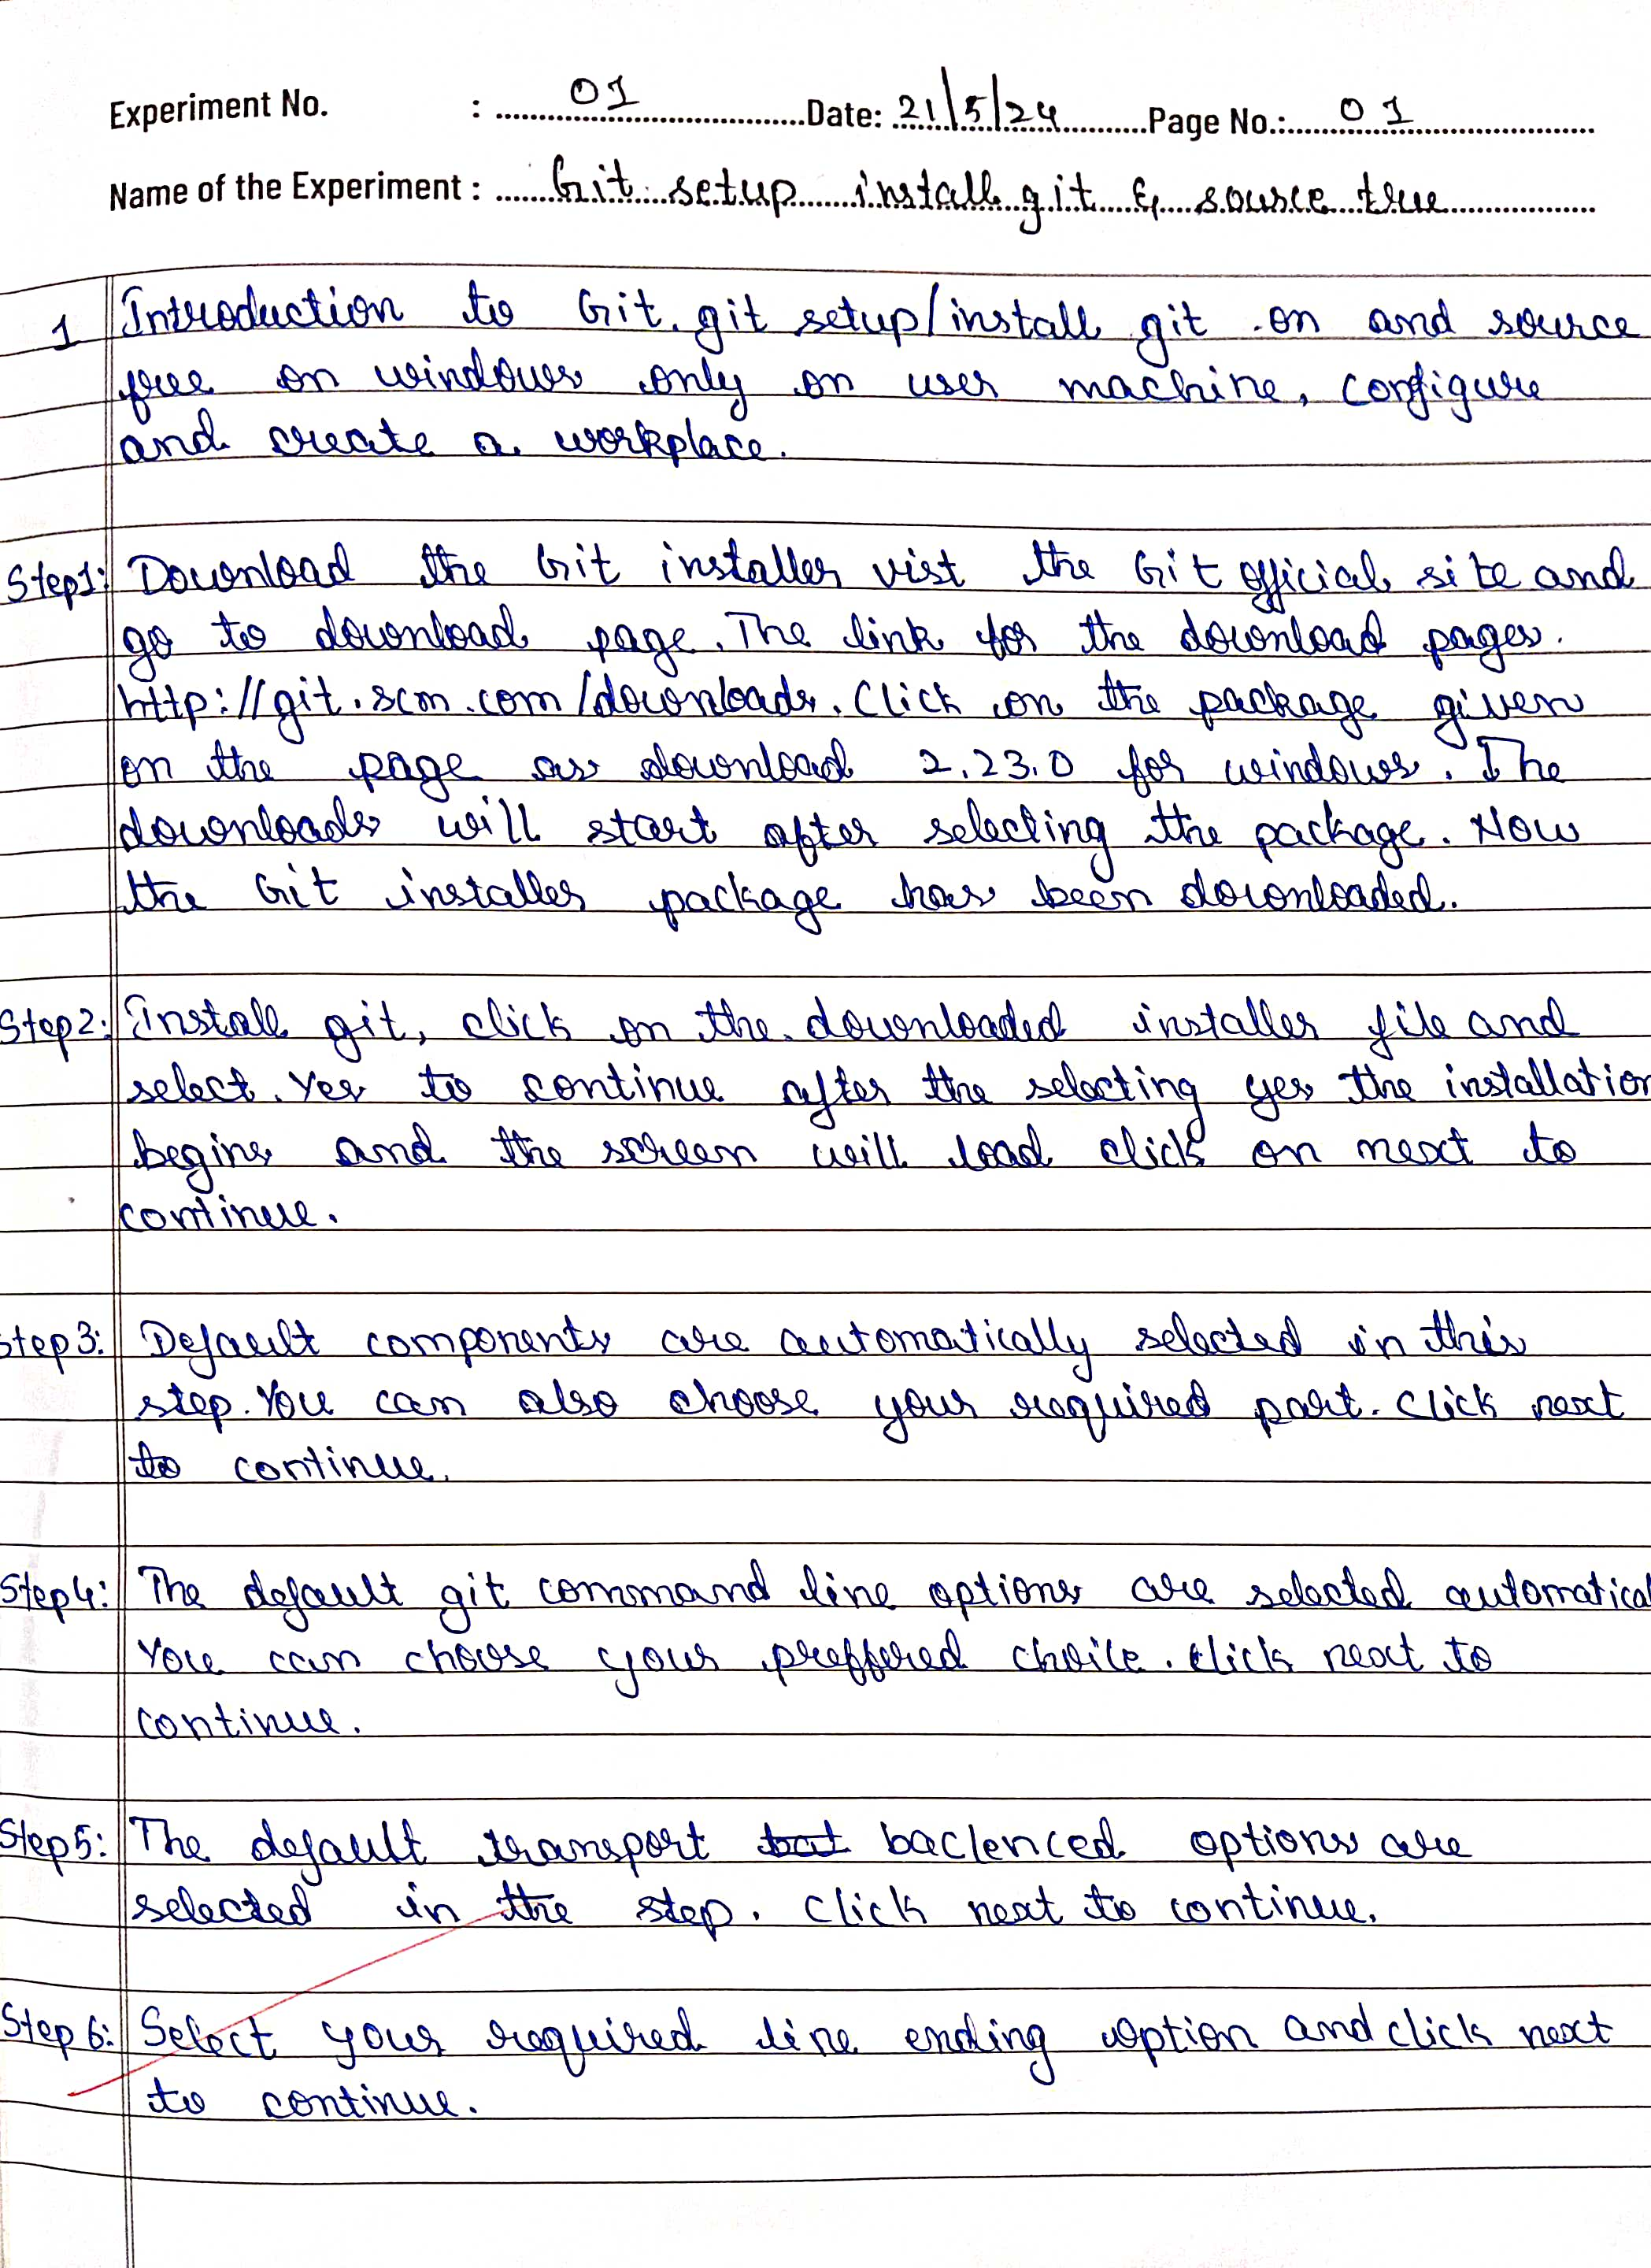 Experiment No. : 01 Date: 21/5/24 Page No.: 01
Name of the Experiment : Git setup install git & source true
1 Introduction to Git. git setup/install git on and source
free on windows only on user machine, configure
and create a workplace.
Step1: Download the Git installer vist the Git official site and
go to download page. The link for the download pages.
http://git.scm.com/downloads. Click on the package given
on the page as download 2.23.0 for windows. The
downloads will start after selecting the package. Now
the Git installer package has been downloaded.
Step2: Install git, click on the downloaded installer file and
select. Yes to continue after the selecting yes the installation
begins and the screen will load click on next to
continue.
Step3: Default components are automatically selected in this
step. You can also choose your required part. Click next
to continue.
Step4: The default git command line options are selected automatical
You can choose your preffered choice. click next to
continue.
Step5: The default transport bat baclenced options are
selected in the step. Click next to continue.
Step6: Select your required line ending option and click next
to continue.